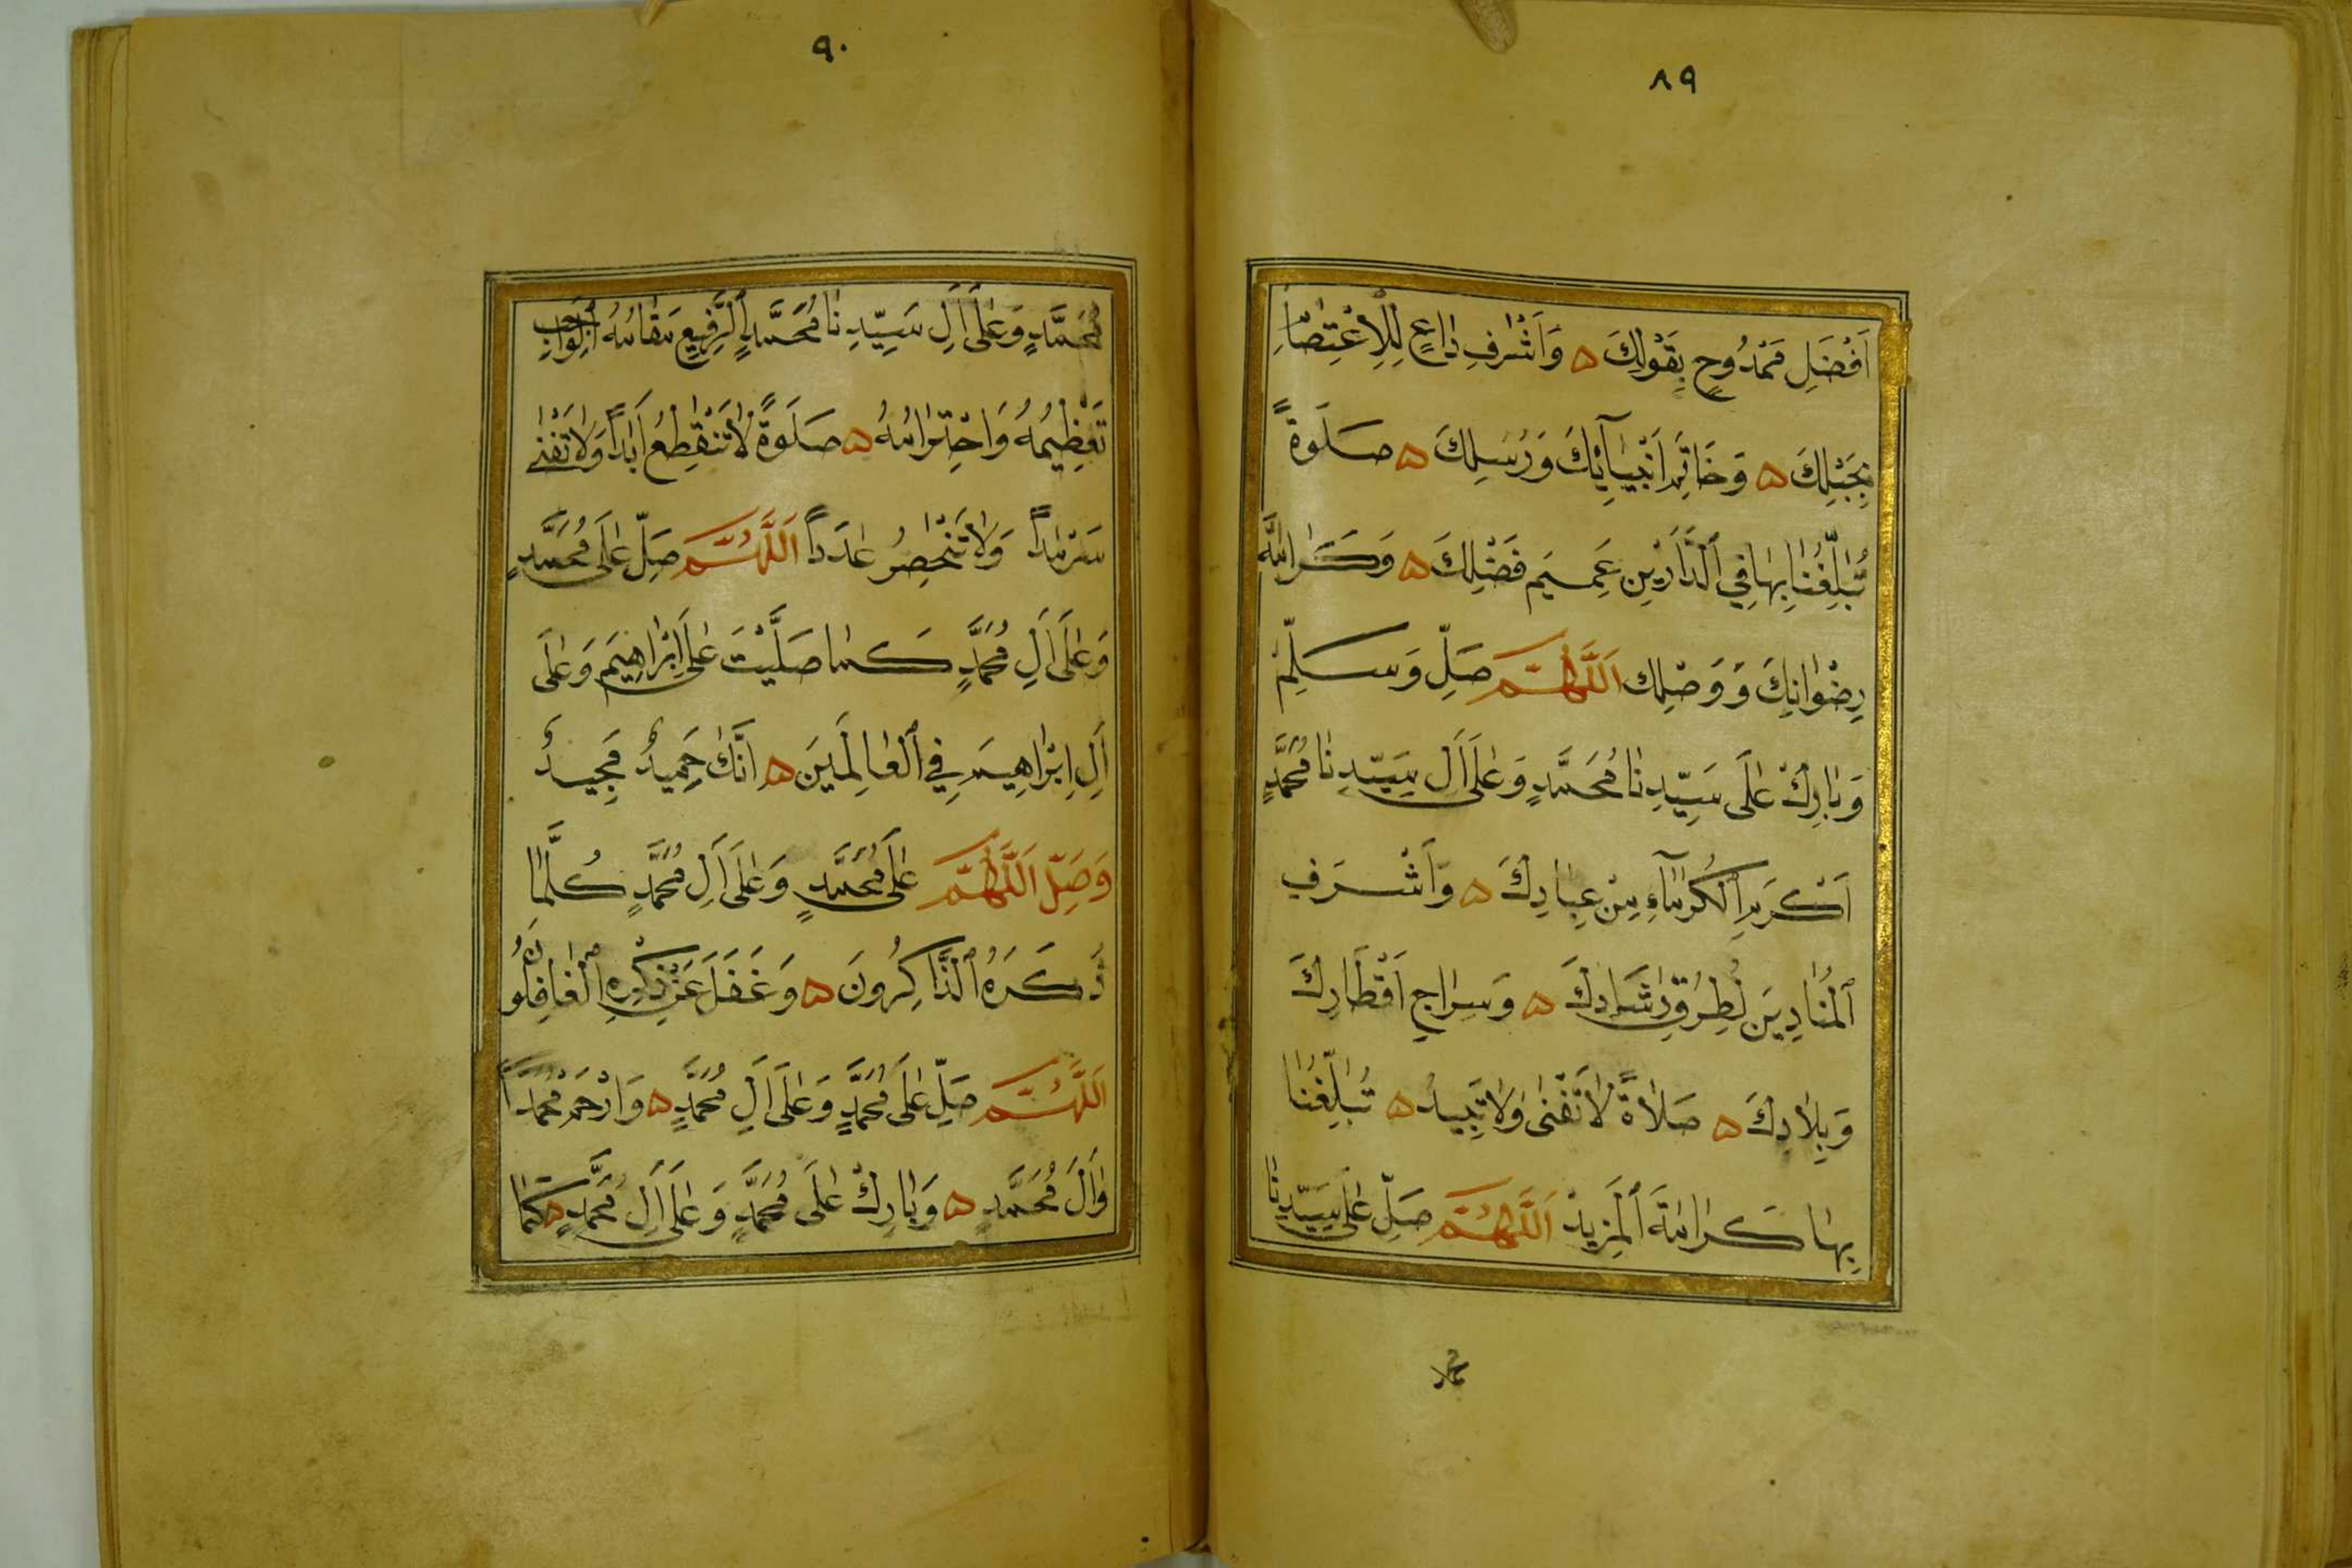 ٨٩
اَفْضَلِ مَمْدُوحٍ بِقَوْلِكَ ه وَاَشْرَفِ دَاعٍ لِلْاِعْتِصَامِ
بِحَبْلِكَ ه وَخَاتِمِ اَنْبِيَآئِكَ وَرُسُلِكَ ه صَلَوةً
تُبَلِّغُنَا بِهَا فِي ٱلدَّارَيْنِ عَمِيمَ فَضْلِكَ ه وَكَرَامَةَ
رِضْوَانِكَ وَوَصْلِك اَللَّهُمَّ صَلِّ وَسَلِّمْ
وَبَارِكْ عَلَى سَيِّدِنَا مُحَمَّدٍ وَعَلَى اَلِ سَيِّدِنَا مُحَمَّدٍ
اَكْرَمِ ٱلْكُرَمَآءِ مِنْ عِبَادِكَ ه وَاَشْرَفِ
ٱلْمُنَادِينَ لِطُرُقِ رَشَادِكَ ه وَسِرَاجِ اَقْطَارِكَ
وَبِلَادِكَ ه صَلَاةً لَاتَفْنَى وَلَاتَبِيدُ ه تُبَلِّغُنَا
بِهَا كَرَامَةَ ٱلْمَزِيدْ اَللَّهُمَّ صَلِّ عَلَى سَيِّدِنَا
محمد
٩٠
مُحَمَّدٍ وَعَلَى اَلِ سَيِّدِنَا مُحَمَّدٍ ٱلرَّفِيعِ مَقَامُهُ ٱلْوَاجِبِ
تَعْظِيمُهُ وَاحْتِرَامُهُ ه صَلَوةً لَاتَنْقَطِعُ اَبَداً وَلَاتَفْنَى
سَرْمَداً وَلَاتَنْحَصِرُ عَدَداً اَللَّهُمَّ صَلِّ عَلَى مُحَمَّدٍ
وَعَلَى اَلِ مُحَمَّدٍ كَمَا صَلَّيْتَ عَلَى اِبْرَاهِيمَ وَعَلَى
اَلِ اِبْرَاهِيمَ فِي ٱلْعَالَمِينَ ه اِنَّكَ حَمِيدٌ مَجِيدٌ
وَصَلِّ اَللَّهُمَّ عَلَى مُحَمَّدٍ وَعَلَى اَلِ مُحَمَّدٍ كُلَّمَا
ذَكَرَهُ ٱلذَّاكِرُونَ ه وَغَفَلَ عَنْ ذِكْرِهِ ٱلْغَافِلُونَ
اَللَّهُمَّ صَلِّ عَلَى مُحَمَّدٍ وَعَلَى اَلِ مُحَمَّدٍ ه وَارْحَمْ مُحَمَّداً
وَاَلَ مُحَمَّدٍ ه وَبَارِكْ عَلَى مُحَمَّدٍ وَعَلَى اَلِ مُحَمَّدٍ ه كَمَا